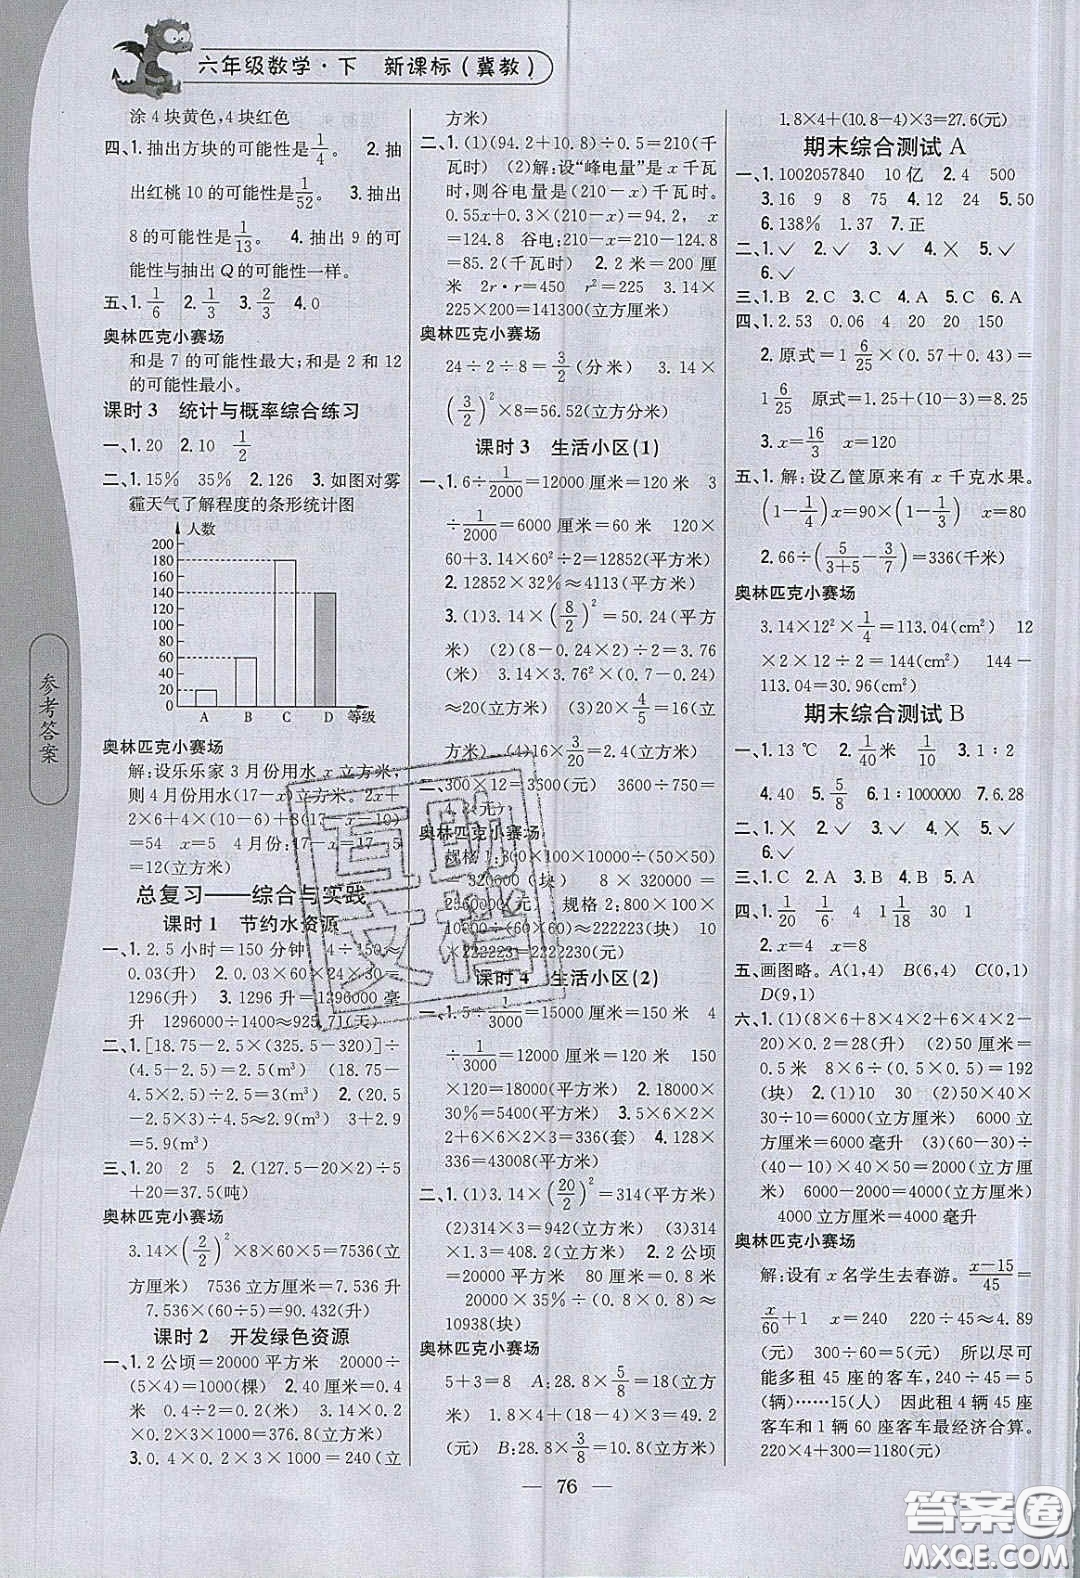 六年级数学·下 新课标(冀教)
涂4块黄色,4块红色
四、1.抽出方块的可能性是1/4。 2.抽
出红桃10的可能性是1/52。 3.抽出
8的可能性是1/13。 4.抽出9的可
能性与抽出Q的可能性一样。
五、1.1/6 2.1/3 3.2/3 4.0
奥林匹克小赛场
和是7的可能性最大;和是2和12
的可能性最小。
课时3 统计与概率综合练习
一、1.20 2.10 1/2
二、1.15% 35% 2.126 3.如图对雾
霾天气了解程度的条形统计图
人数
200
180
160
140
120
100
80
60
40
20
0
A B C D 等级
奥林匹克小赛场
解:设乐乐家3月份用水x立方米,
则4月份用水(17-x)立方米。2x+
2×6+4×(10-6)+8(17-x-10)
=54 x=5 4月份:17-x=17-5
=12(立方米)
总复习——综合与实践
课时1 节约水资源
一、1.2.5小时=150分钟 4÷150≈
0.03(升) 2.0.03×60×24×30=
1296(升) 3.1296升=1296000毫
升 1296000÷1400≈925.71(天)
二、1.[18.75-2.5×(325.5-320)]÷
(4.5-2.5)=2.5(m³) 2.(20.5
-2.5×3)÷4.5≈2.9(m³) 3+2.9
=5.9(m³)
三、1.20 2 5 2.(127.5-20×2)÷5
+20=37.5(吨)
奥林匹克小赛场
3.14×(2/2)²×8×60×5=7536(立
方厘米) 7536立方厘米=7.536升
7.536×(6+5+1)=90.432(升)
课时2 开发绿色资源
一、1.2公顷=20000平方米 20000÷
(5×4)=1000(棵) 2.40厘米=0.4
米 0.4÷2=0.2(米) 3.14×0.2
×0.2×3×1000=376.8(立方米)
3.0.4×0.2×3×1000=240(立
方米)
二、1.(1)(94.2+10.8)÷0.5=210(千
瓦时) (2)解:设“峰电量”是x千瓦
时,则谷电量是(210-x)千瓦时。
0.55x+0.3×(210-x)=94.2, x
=124.8 谷电:210-x=210-124.8
=85.2(千瓦时) 2.2米=200厘
米 2r·r=450 r²=225 3.14×
225×200=141300(立方厘米)
奥林匹克小赛场
24÷2÷8=3/2(分米) 3.14×
(3/2)²×8=56.52(立方分米)
课时3 生活小区(1)
一、1.6÷1/2000=12000厘米=120米 3
÷1/2000=6000厘米=60米 120×
60+3.14×60²÷2=12852(平方米)
2.12852×32%≈4113(平方米)
3.(1)3.14×(8/2)²=50.24(平方
米) (2)(8-0.24×2)÷2=3.76
(米) 3.14×3.76²×(0.7-0.24)
≈20(立方米) (3)20×4/5=16(立方
方米) (4)16×3/20=2.4(立方米)
二、300×12=3600(元) 3600÷750=
4.8(元)
奥林匹克小赛场
规格1:800×100×10000÷(50×50)
=320000(块) 8×320000=
2560000(元) 规格2:800×100×
10000÷(60×60)≈222223(块) 10
×222223=2222230(元)
课时4 生活小区(2)
一、1.5÷1/3000=15000厘米=150米 4
÷1/3000=12000厘米=120米 150
×120=18000(平方米) 2.18000×
30%=5400(平方米) 3.5×6×2×
2+6×6×2×3=336(套) 4.128×
336=43008(平方米)
二、1.(1)3.14×(20/2)²=314(平方米)
(2)314×3=942(立方米) (3)314
×1.3=408.2(立方米) 2.2公顷=
20000平方米 80厘米=0.8米
20000×35%÷(0.8×0.8)≈
10938(块)
奥林匹克小赛场
5+3=8 A:28.8×5/8=18(立方
米) 1.8×4+(18-4)×3=49.2
(元) B:28.8×3/8=10.8(立方米)
1.8×4+(10.8-4)×3=27.6(元)
期末综合测试A
一、1.1002057840 10亿 2.4 500
3.16 9 8 75 4.12 24 5.50
6.138% 1.37 7.正
二、1.✓ 2.✓ 3.× 4.× 5.✓
6.✓
三、1.B 2.C 3.C 4.A 5.C 6.A
四、1.2.53 0.06 4 20 20 150
2.原式=1 6/25×(0.57+0.43)=
1 6/25 原式=1.25+(10-3)=8.25
3.x=16/3 x=120
五、1.解:设乙筐原来有x千克水果。
(1-1/4)x=90×(1-1/3) x=80
2.66÷(5/(3+5)-3/7)=336(千米)
奥林匹克小赛场
3.14×12²×1/4=113.04(cm²) 12
×2×12÷2=144(cm²) 144-
113.04=30.96(cm²)
期末综合测试B
一、1.13℃ 2.1/40米 1/10 3.1:2
4.40 5.5/8 6.1:1000000 7.6.28
二、1.× 2.✓ 3.✓ 4.× 5.✓
6.✓
三、1.C 2.C 3.B 4.C 5.A
四、1.1/20 1/6 4 1/18 30 1
2.x=4 x=8
五、画图略。A(1,4) B(6,4) C(0,1)
D(9,1)
六、1.(1)(8×6+8×4×2+6×4×
2)×0.2=28(升) (2)50厘米=
0.5米 8×6÷(0.5×0.5)=192
(块) 2.(1)10 30 (2)60×10×
30÷10=6000(立方厘米) 6000立
方厘米=6000毫升 (3)(60-30)÷
(40-10)×40×10÷2=2000(立方
厘米) 6000-2000=4000(立方厘米)
4000立方厘米=4000毫升
奥林匹克小赛场
解:设有x名学生去春游。(x-15)/45=
x/60+1 x=240 220÷45≈4.89
(元) 300÷60=5(元) 所以尽可
能多租45座的客车,240÷45=5
(辆)……15(人) 因此租4辆45座
客车和1辆60座客车最经济合算。
220×4+300=1180(元)
参考答案
76
互助文档
答案圈
MXQE.COM